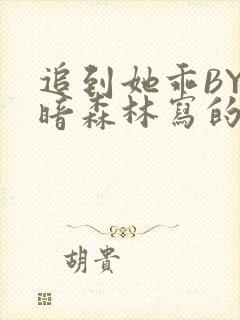 追到她乖BY
暗森林寫的
胡貴